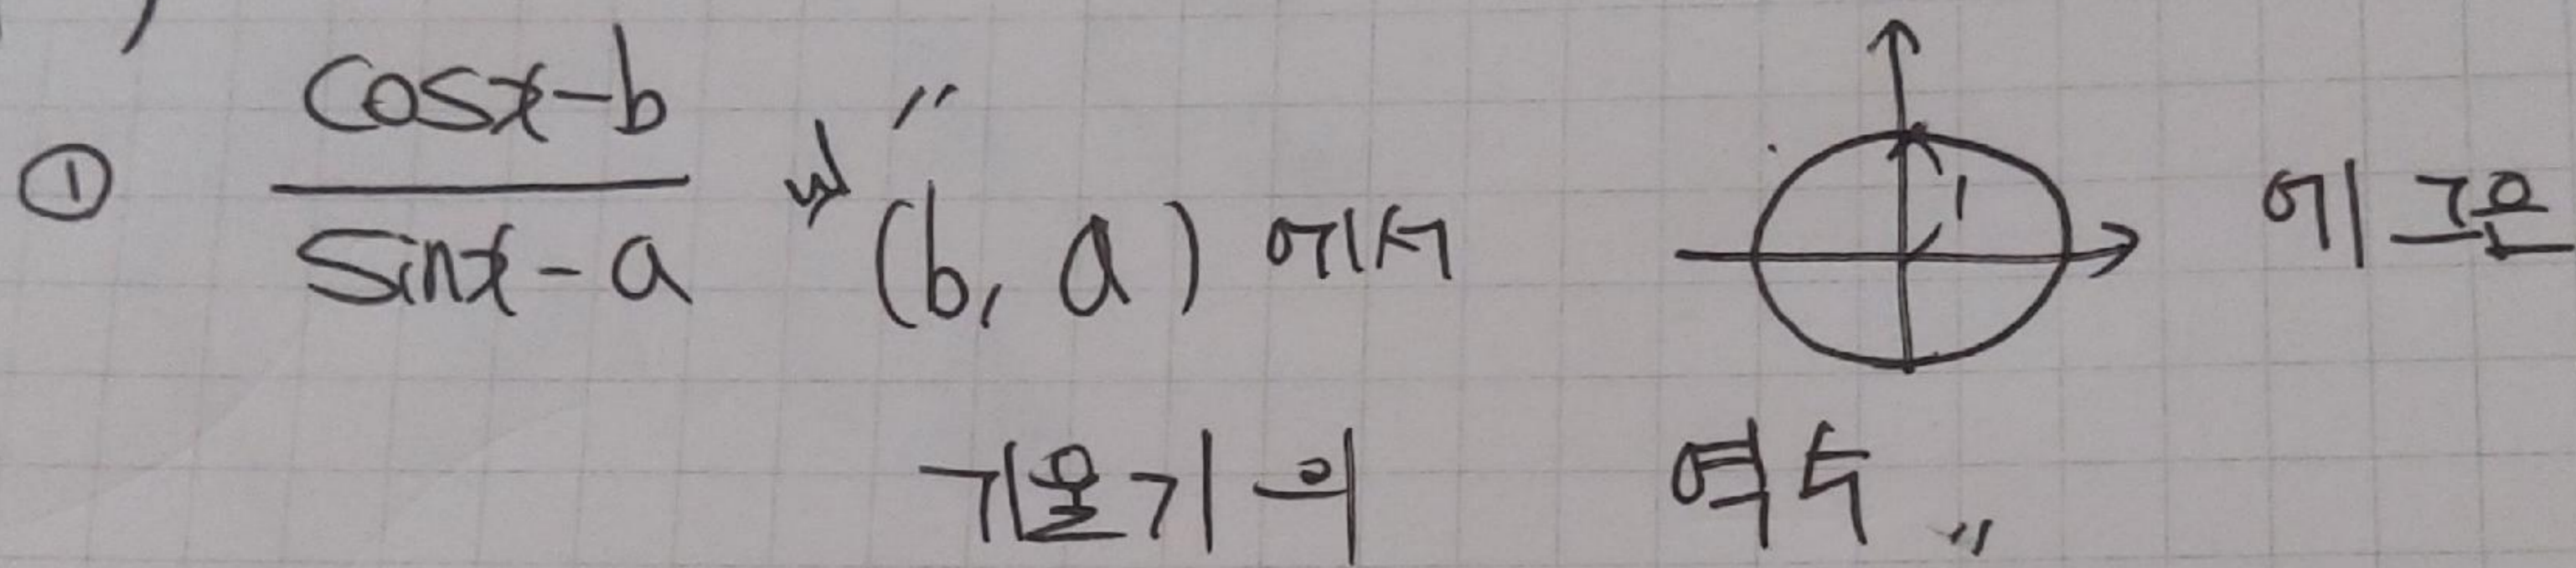 ① (cosx-b)/(sinx-a) ⇒ "(b, a) 에서 1 에 그은
기울기의 역수"